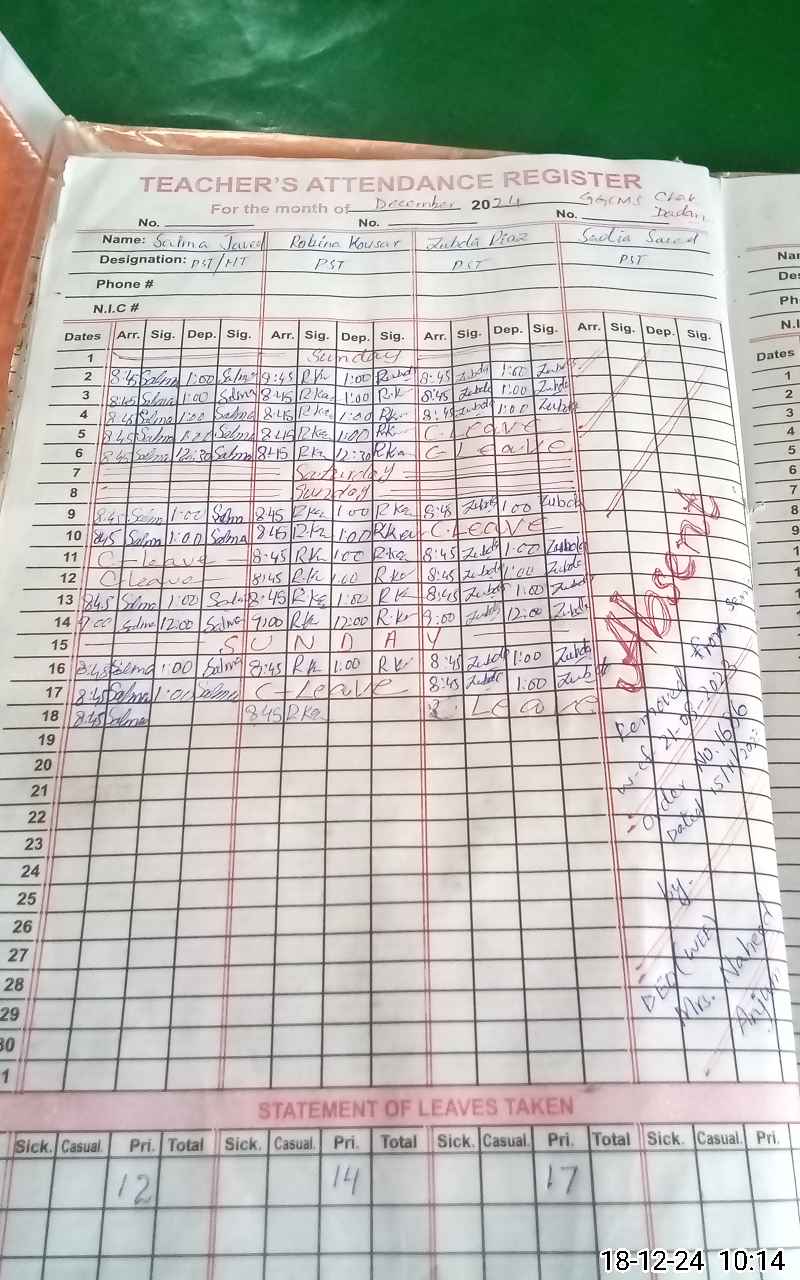 TEACHER'S ATTENDANCE REGISTER
For the month of December 2024 GGCMS Chak Dadan
No. No. No.
Name: Salma Javed Robina Kousar Zubda Riaz Sadia Saeed
Designation: PST/HT PST PST PST
Phone #
N.I.C #
Dates Arr. Sig. Dep. Sig. Arr. Sig. Dep. Sig. Arr. Sig. Dep. Sig. Arr. Sig. Dep. Sig.
1 Sunday
2 8:45 Salma 1:00 Salma 8:45 R.Ka 1:00 8:45 Zubda 1:00 Zubda
3 8:45 Salma 1:00 Salma 8:45 R.Ka 1:00 R.K 8:45 Zubda 1:00 Zubda
4 8:45 Salma 1:00 Salma 8:45 R.Ka 1:00 R.Ka 8:45 Zubda 1:00 Zubda
5 8:45 Salma 1:00 Salma 8:45 R.Ka 1:00 R.Ka C-Leave
6 8:45 Salma 12:30 Salma 8:45 R.Ka 12:30 R.Ka C-Leave
7 Saturday
8 Sunday
9 8:45 Salm 1:00 Salm 8:45 R.Ka 1:00 R.Ka 8:45 Zubda 1:00 Zubda
10 8:45 Salma 1:00 Salma 8:45 R.Ka 1:00 R.Ka C-Leave
11 C-leave 8:45 R.Ka 1:00 R.Ka 8:45 Zubda 1:00 Zubda
12 C-leave 8:45 R.Ka 1:00 R.Ka 8:45 Zubda 1:00 Zubda
13 8:45 Salma 1:00 Salma 8:45 R.Ka 1:00 R.Ka 8:45 Zubda 1:00 Zubda
14 9:00 Salma 12:00 Salma 9:00 R.Ka 12:00 R.Ka 9:00 Zubda 12:00 Zubda
15 SUNDAY
16 8:45 Salma 1:00 Salma 8:45 R.Ka 1:00 R.Ka 8:45 Zubda 1:00 Zubda
17 8:45 Salma 1:00 Salma C-Leave 8:45 Zubda 1:00 Zubda
18 8:45 Salma 8:45 R.Ka Leave
19
20
21
22
23
24
25
26
27
28
29
30
1
Absent
Removed from
w-e-f 21-08-2023
Order No. 1636
Dated 15/11/2023
by.
DEO (WEE)
Mrs. Naheed
Anjum
STATEMENT OF LEAVES TAKEN
Sick. Casual. Pri. Total Sick. Casual. Pri. Total Sick. Casual. Pri. Total Sick. Casual. Pri.
12 14 17
Dates
1
2
3
4
5
6
7
8
18-12-24 10:14